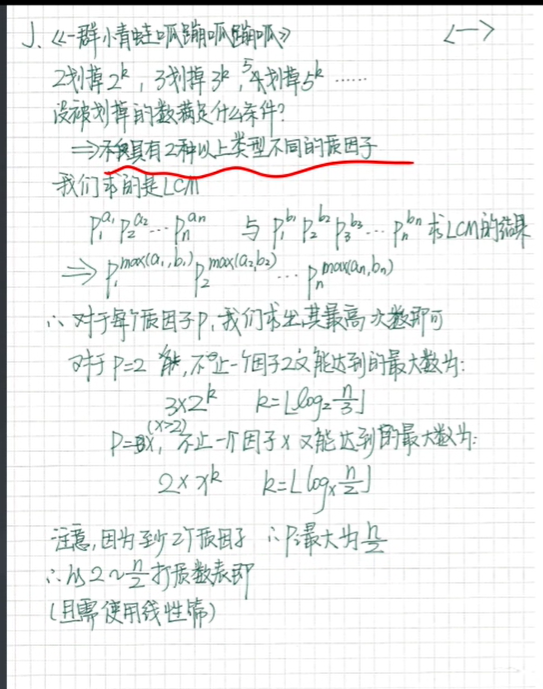 J.《一群小青蛙呱蹦呱蹦呱》 <一>
2划掉2^k，3划掉3^k，5划掉5^k ……
没被划掉的数满足什么条件？
⇒ 具有2种以上类型不同的质因子
我们求的是LCM
p₁^a₁ p₂^a₂ … pₙ^aₙ 与 p₁^b₁ p₂^b₂ p₃^b₃ … pₙ^bₙ 求LCM的结果
⇒ p₁^max(a₁,b₁) p₂^max(a₂,b₂) … pₙ^max(aₙ,bₙ)
∴ 对于每个质因子p，我们求出其最高次数即可
对于P=2，不止一个因子2又能达到的最大数为：
3×2^k k=⌊log₂ n/3⌋
P=x(x>2)，不止一个因子x又能达到的最大数为：
2×x^k k=⌊logₓ n/2⌋
注意，因为至少2个质因子 ∴P最大为 n/2
∴从2~n/2打质数表即
(且需使用线性筛)